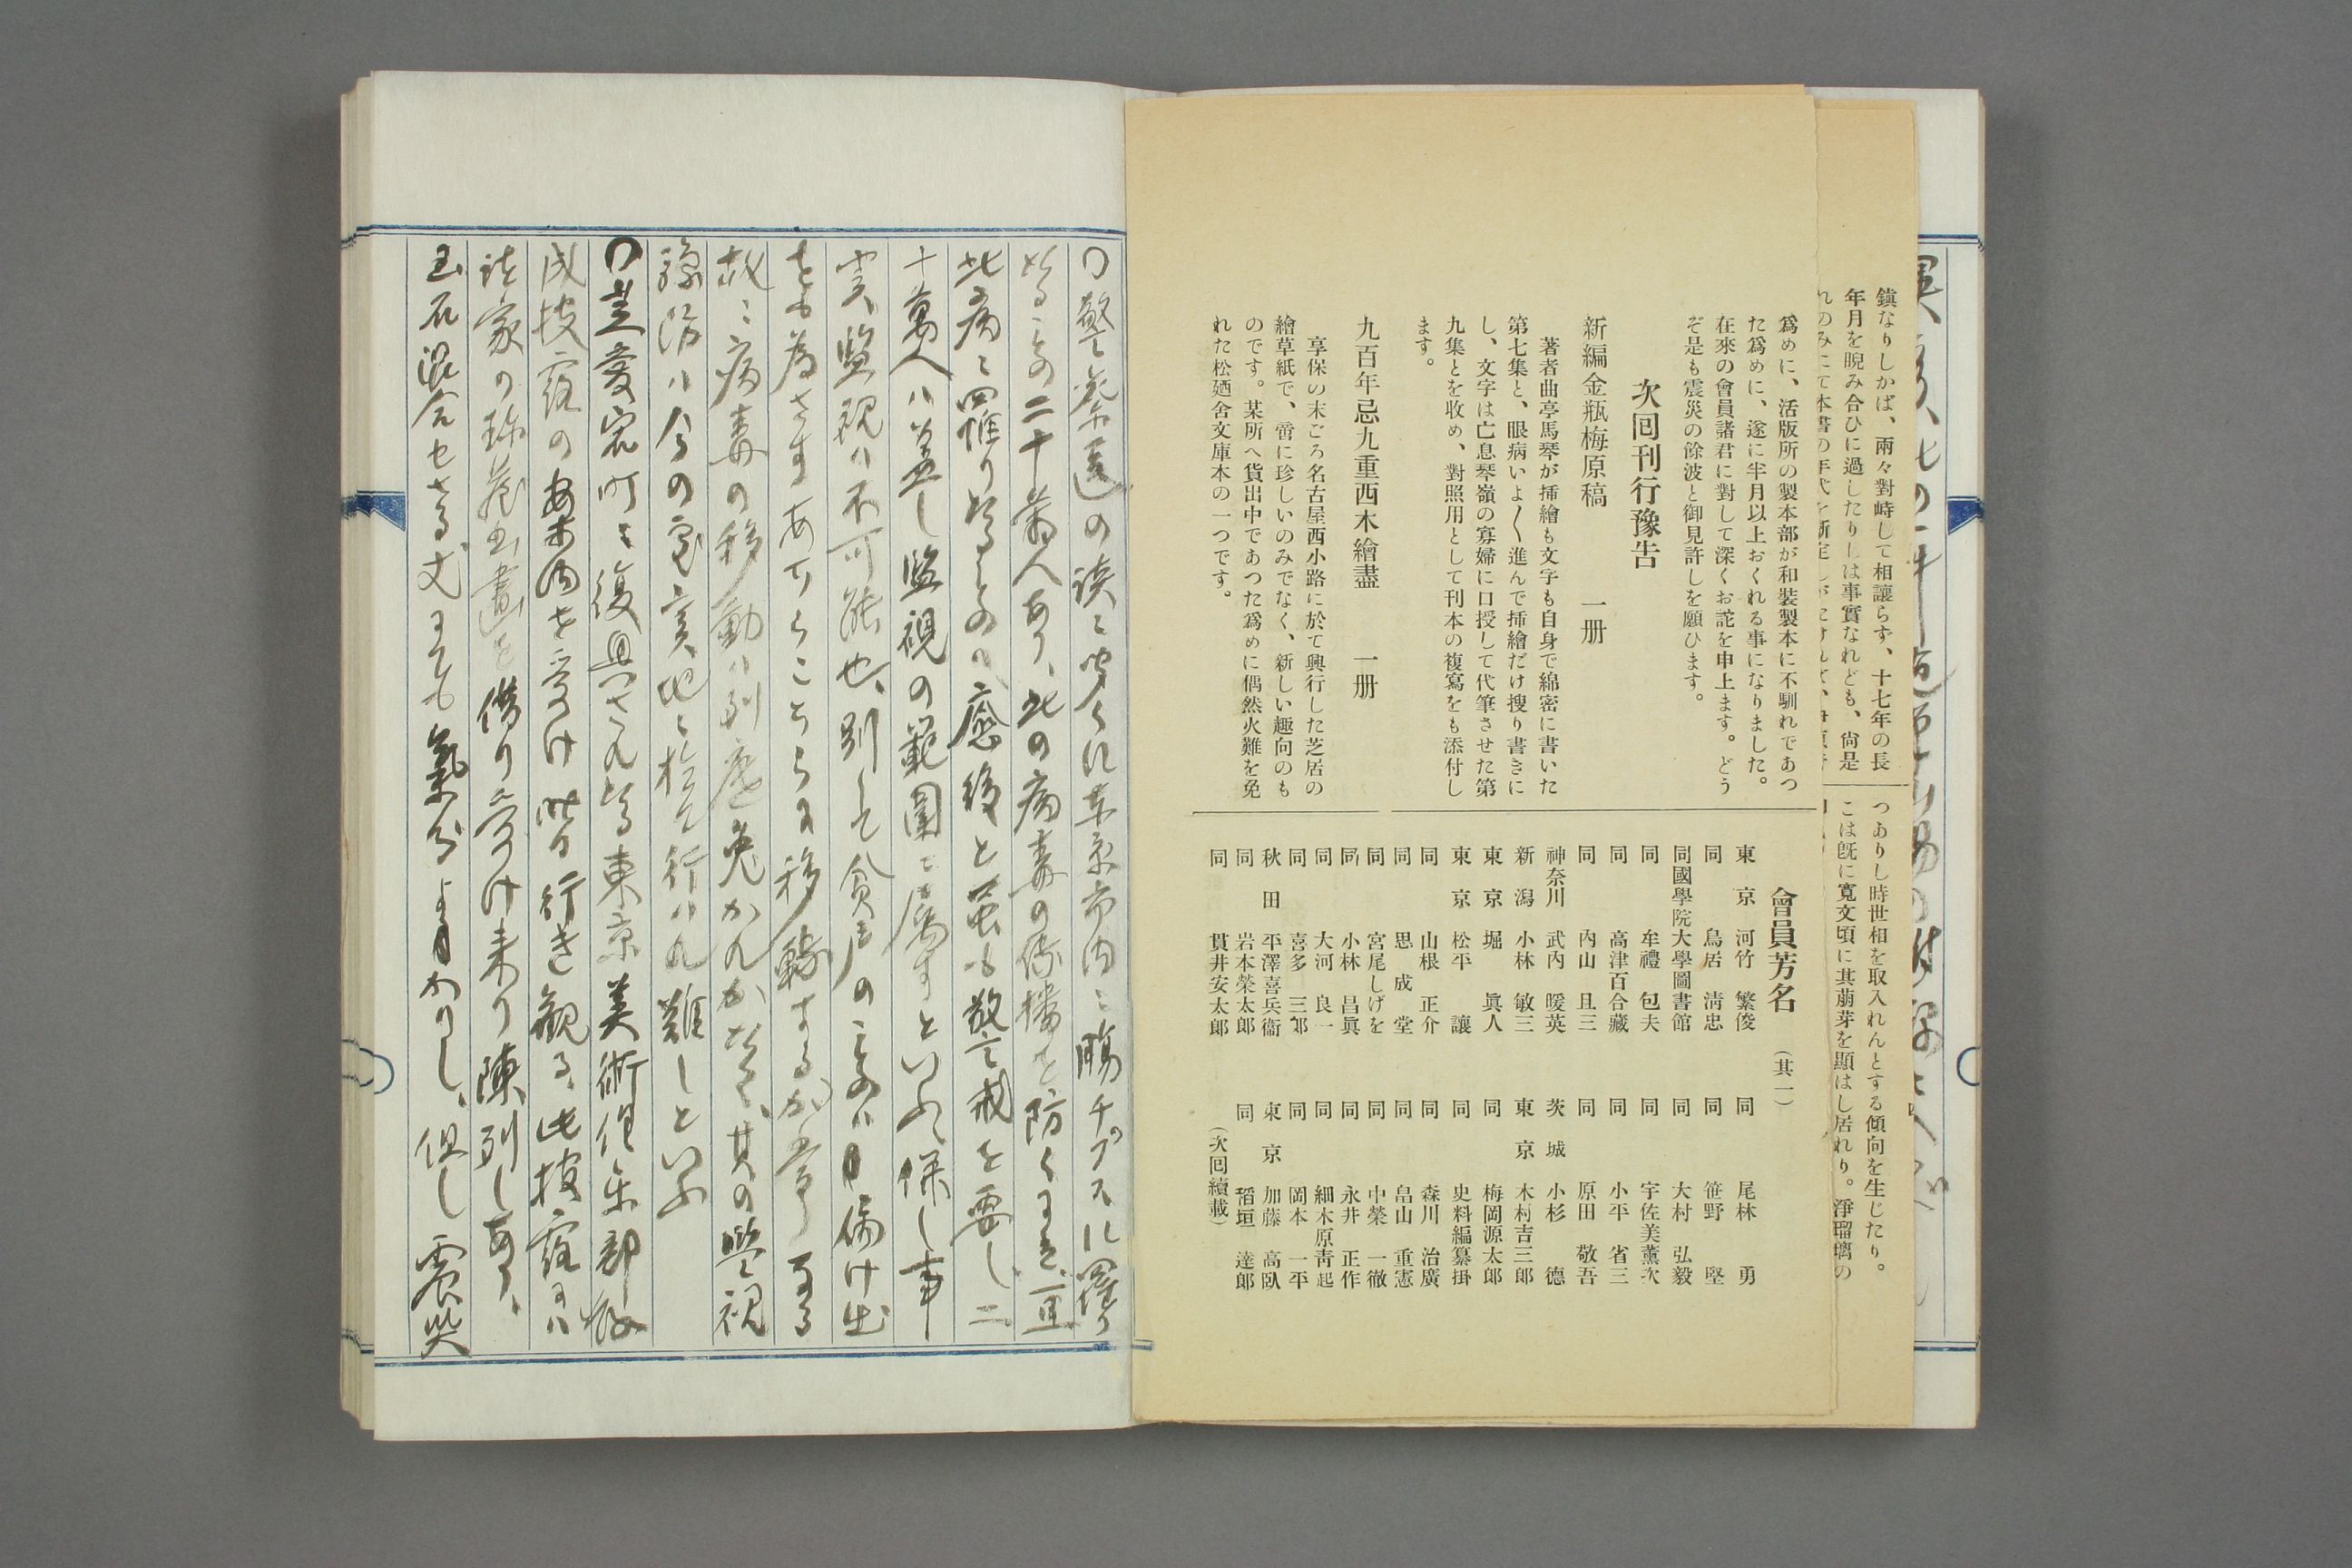 鎭なりしかば、兩々對峙して相讓らず、十七年の長
年月を睨み合ひに過したりしは事實なれども、尙是
つありし時世相を取入れんとする傾向を生じたり。
こは既に寛文頃に其萠芽を顯はし居れり。淨瑠璃の
爲めに、活版所の製本部が和裝製本に不馴れであつ
た爲めに、遂に半月以上おくれる事になりました。
在來の會員諸君に對して深くお詫を申上ます。どう
ぞ是も震災の餘波と御見許しを願ひます。
次囘刊行豫吿
新編金瓶梅原稿 一册
著者曲亭馬琴が揷繪も文字も自身で綿密に書いた
第七集と、眼病いよ〱進んで揷繪だけ搜り書きに
し、文字は亡息琴嶺の寡婦に口授して代筆させた第
九集とを收め、對照用として刊本の複寫をも添付し
ます。
九百年忌九重西木繪盡 一册
享保の末ごろ名古屋西小路に於て興行した芝居の
繪草紙で、啻に珍しいのみでなく、新しい趣向のも
のです。某所へ貸出中であつた爲めに偶然火難を免
れた松廼舍文庫本の一つです。
會員芳名 (其一)
東京 河竹 繁俊
同 鳥居 淸忠
同 國學院大學圖書館
同 牟禮 包夫
同 高津百合藏
同 內山 且三
神奈川 武內 暖英
新潟 小林 敏三
東京 堀 眞人
東京 松平 讓
同 山根 正介
同 思成堂
同 宮尾しげを
同 小林 昌眞
同 大河 良一
同 喜多 三郞
秋田 平澤喜兵衞
同 岩本榮太郞
同 貫井安太郞
同 尾林 勇
同 笹野 堅
同 大村 弘毅
同 宇佐美薰次
同 小平 省三
同 原田 敬吾
茨城 小杉 德
東京 木村吉三郞
同 梅岡源太郞
同 史料編纂掛
同 森川 治廣
同 畠山 重憲
同 中榮 一徹
同 永井 正作
同 細木原靑起
同 岡本 一平
東京 加藤 高臥
同 稻垣 達郞
(次囘續載)
〇警察醫の談に聞くに東京市內に腸チブスに罹り
たるもの二十萬人あり、此の病毒の傳播を防ぐには、宜
此病に罹りたるものゝ癒後と雖も警戒を要し、二
十萬人ハ蓋し監視の範圍に屬すといふ、併し事
實監視ハ不可能也、別して貧民のものハ
移轉するが常なる
故に病毒の移動ハ到底免かれがたく、其の監視
豫防ハ今の處實地に於て行ハれ難しといふ
〇芝愛宕町に復興されたる東京美術俱樂部
成披露の案內を受け昨日行き觀る、此披露にハ
諸家の珍藏書畫を借り受け來り陳列しあり、
玉石混合せざる丈にても氣分よかりし、但し震災